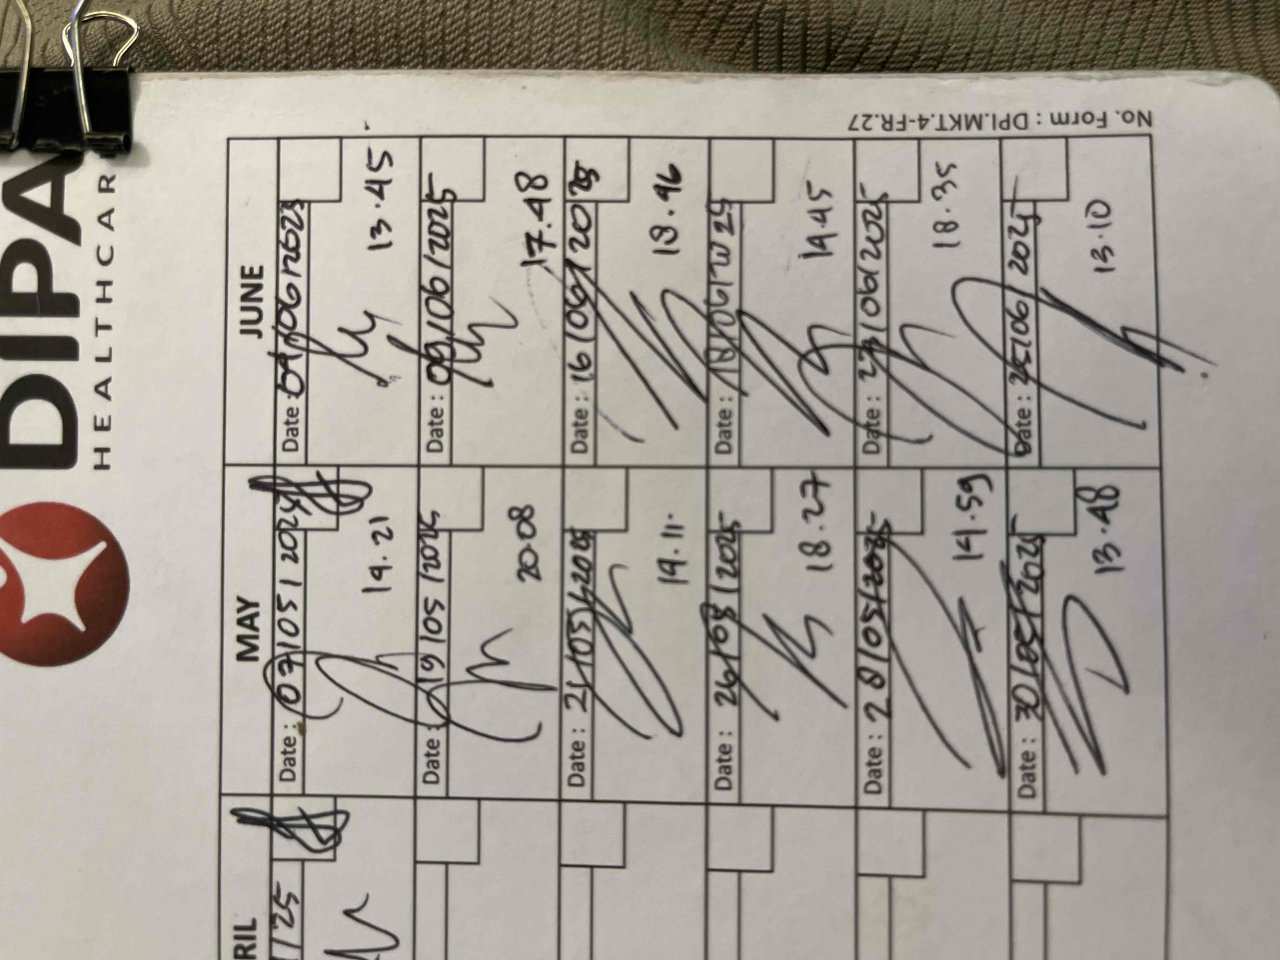 DIPA
HEALTHCAR
RIL MAY JUNE
/25 Date : 07/05/ Date :
19.21 13.45
Date : 19/05/2025 Date : 09/06/2025
20.08 17.48
Date : 21/05/2025 Date : 16/06/2025
19.11
Date : 26/05/2025 Date : 18/06/2025
18.27
Date : 28/05/2025 Date : 23/06/2025
14.59 18.35
Date : 30/05/2025 Date : 25/06/2025
13.48 13.10
No. Form : DPI.MKT.4-FR.27